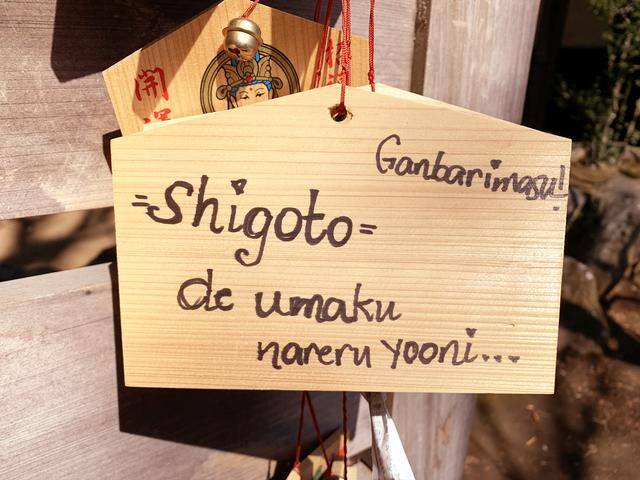 開運
Ganbarimasu!
=Shigoto=
de umaku
nareru yooni...